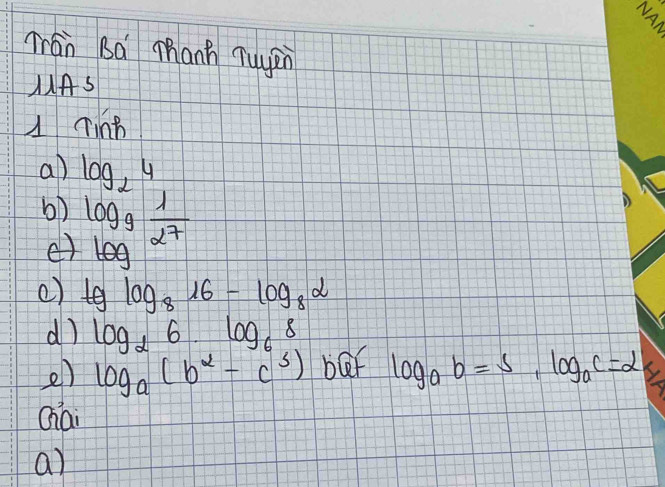 Trần Bá Thanh Tuyền
11A5
1 Tính
a) log₂ 4
b) log₉ 1/27
c) log
c) lg log₈ 16 - log₈ 2
d) log₂ 6 . log₆ 8
e) logₐ (b² - c³) biết logₐ b = 5, logₐ c = 2
Giải
a)
NAM
HA